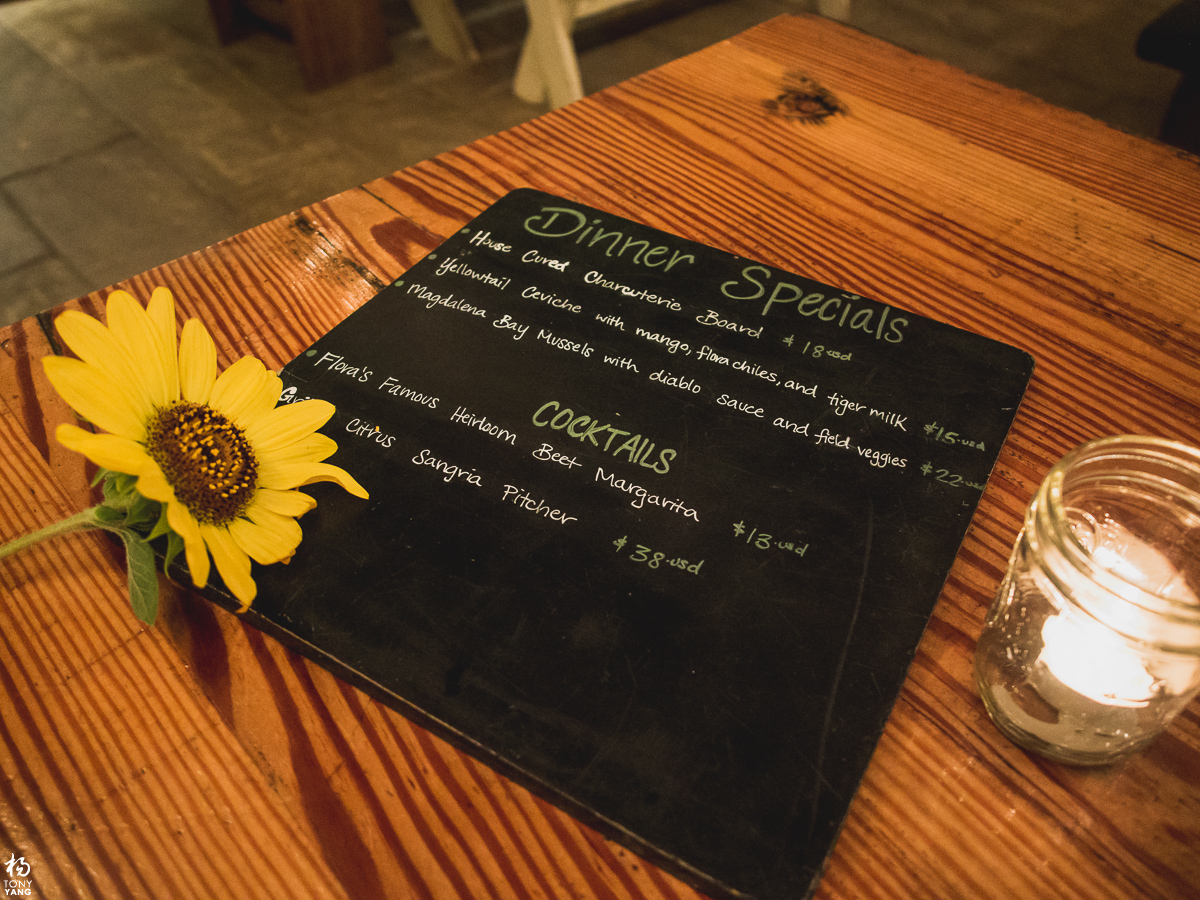 Dinner Specials
• House Cured Charcuterie Board $18.usd
• Yellowtail Ceviche with mango, flora chiles, and tiger milk $15.usd
• Magdalena Bay Mussels with diablo sauce and field veggies $22.usd
COCKTAILS
• Flora's Famous Heirloom Beet Margarita $13.usd
Citrus Sangria Pitcher $38.usd
杨
TONY
YANG